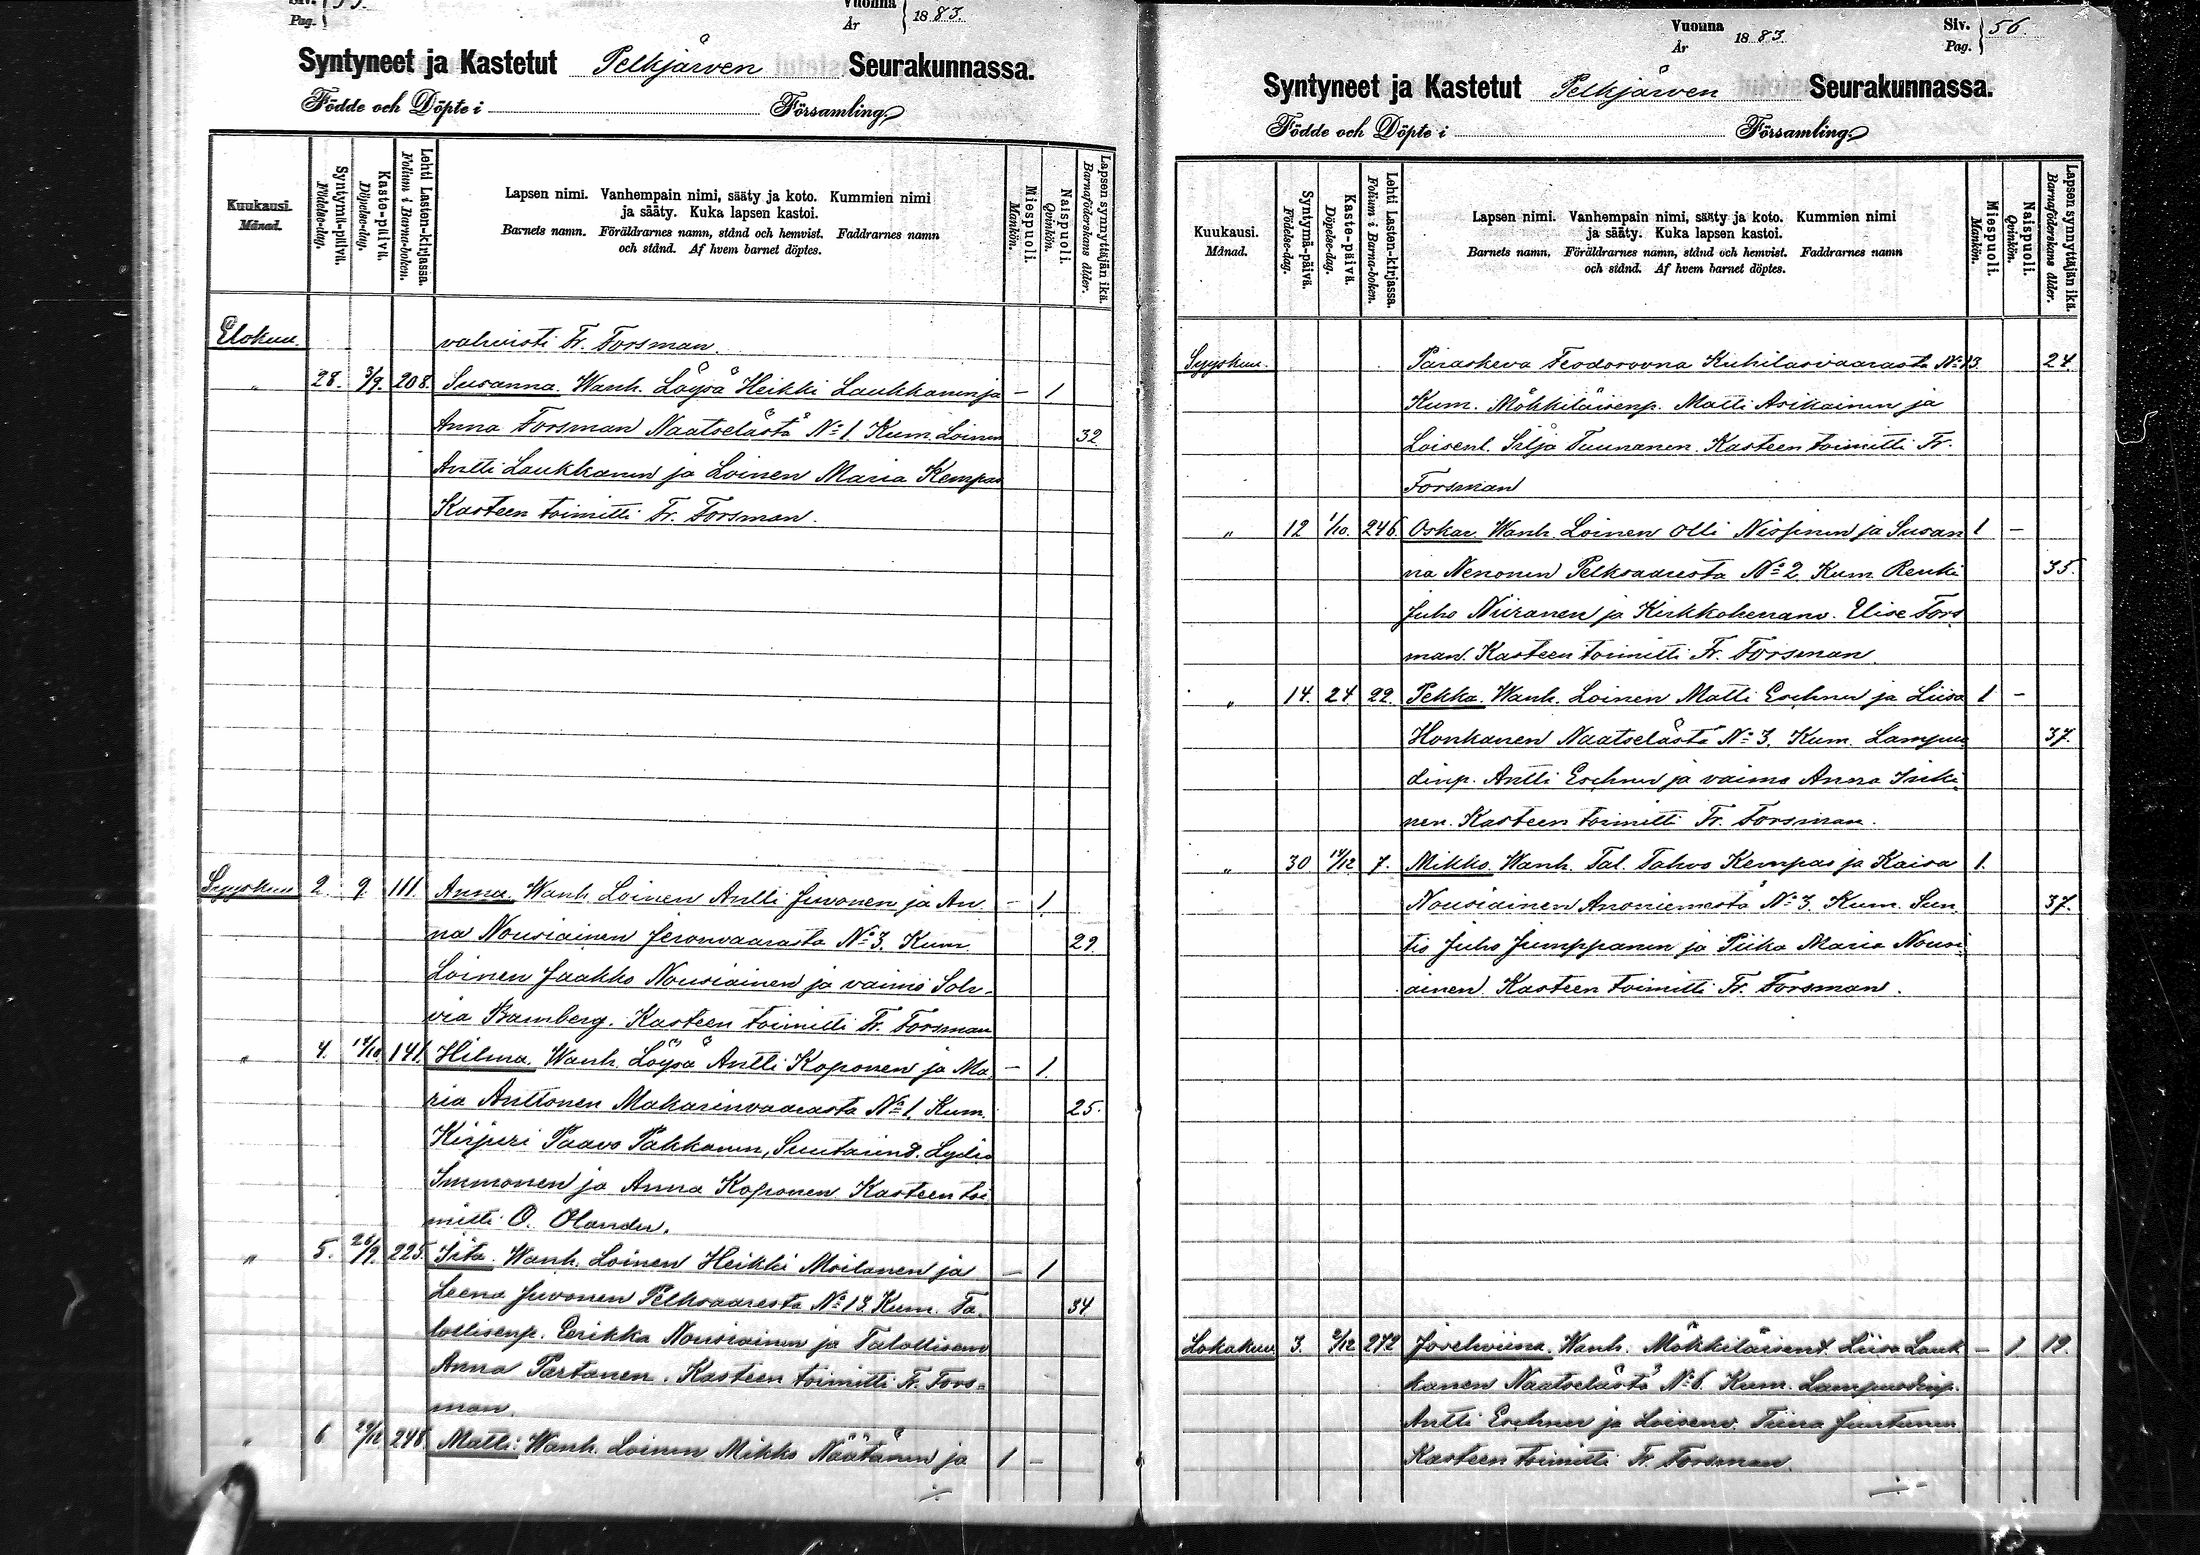 Siv. 55.
Pag.
Vuonna 1883.
År
Syntyneet ja Kastetut Pelkjärven Seurakunnassa.
Födde och Döpte i Församling.
Kuukausi.
Månad.
Syntymä-päivä.
Födelse-dag.
Kaste-päivä.
Döpelse-dag.
Lehti Lasten-kirjassa.
Folium i Barna-boken.
Lapsen nimi. Vanhempain nimi, sääty ja koto. Kummien nimi
ja sääty. Kuka lapsen kastoi.
Barnets namn. Föräldrarnes namn, stånd och hemvist. Faddrarnes namn
och stånd. Af hvem barnet döptes.
Miespuoli.
Mankön.
Naispuoli.
Qvinkön.
Lapsen synnyttäjän ikä.
Barnaföderskans ålder.
Elokuu. vahvisti Fr. Forsman.
" 28. 3/9. 208. Susanna. Wanh. Löysä Heikki Laukkanen ja — 1
Anna Forsman Naatselästä No 1 Kum. Loinen 32
Antti Laukkanen ja Loinen Maria Kempas
Kasteen toimitti Fr. Forsman.
Syyskuu 2. 9. 111. Anna. Wanh. Loinen Antti Juvonen ja An- — 1.
na Nousiainen Jeronvaarasta No 3. Kum. 29.
Loinen Jaakko Nousiainen ja vaimo Soh-
via Bamberg. Kasteen toimitti Fr. Forsman
" 4. 14/10 141. Hilma. Wanh. Löysä Antti Koponen ja Ma- — 1.
ria Anttonen Makarinvaarasta No 1. Kum. 25.
Kirjuri Paavo Pakkanen, Suutarind. Lydia
Immonen ja Anna Koponen Kasteen toi
mitti O. Olander.
" 5. 26/9. 225. Iita. Wanh. Loinen Heikki Moilanen ja — 1
Leena Juvonen Pelksaaresta No 13. Kum. Ta- 34
lollisenp. Eerikka Nousiainen ja Talollisenv
Anna Partanen. Kasteen toimitti Fr. Fors-
man.
" 6 29/12 248. Matti. Wanh. Loinen Mikko Näätänen ja 1 —
Vuonna 1883.
År
Siv. 56.
Pag.
Syntyneet ja Kastetut Pelkjärven Seurakunnassa.
Födde och Döpte i Församling.
Kuukausi.
Månad.
Syntymä-päivä.
Födelse-dag.
Kaste-päivä.
Döpelse-dag.
Lehti Lasten-kirjassa.
Folium i Barna-boken.
Lapsen nimi. Vanhempain nimi, sääty ja koto. Kummien nimi
ja sääty. Kuka lapsen kastoi.
Barnets namn. Föräldrarnes namn, stånd och hemvist. Faddrarnes namn
och stånd. Af hvem barnet döptes.
Miespuoli.
Mankön.
Naispuoli.
Qvinkön.
Lapsen synnyttäjän ikä.
Barnaföderskans ålder.
Syyskuu. Paraskeva Feodorovna Kuhilasvaarasta No 13. 24.
Kum. Mökkiläisenp. Matti Asikainen ja
Loisent. Silja Tuunanen. Kasteen toimitti Fr.
Forsman
" 12 1/10. 246. Oskar. Wanh. Loinen Olli Nissinen ja Susan 1 —
na Nenonen Pelksaaresta No 2 Kum. Renki 35.
Juho Niiranen ja Kirkkoherranv. Elise Fors
man. Kasteen toimitti Fr. Forsman.
" 14. 24 22. Pekka. Wanh. Loinen Matti Eschner ja Liisa 1 —
Honkanen Naatselästä No 3. Kum. Lampuo 37.
dinp. Antti Eschner ja vaimo Anna Inki-
nen. Kasteen toimitti Fr. Forsman.
" 30 14/12 7. Mikko. Wanh. Tal. Tahvo Kempas ja Kaisa 1.
Nousiainen Anoniemestä No 3. Kum. Sun- 37.
tio Juho Jumppanen ja Piika Maria Nousi-
ainen. Kasteen toimitti Fr. Forsman.
Lokakuu 3. 2/12 272 Joselviina. Wanh. Mökkiläisent. Liisa Lauk — 1. 19.
kanen Naatselästä No 6. Kum. Lampuodinp.
Antti Eschner ja Loisenv. Tiina Juntunen
Kasteen toimitti Fr. Forsman.